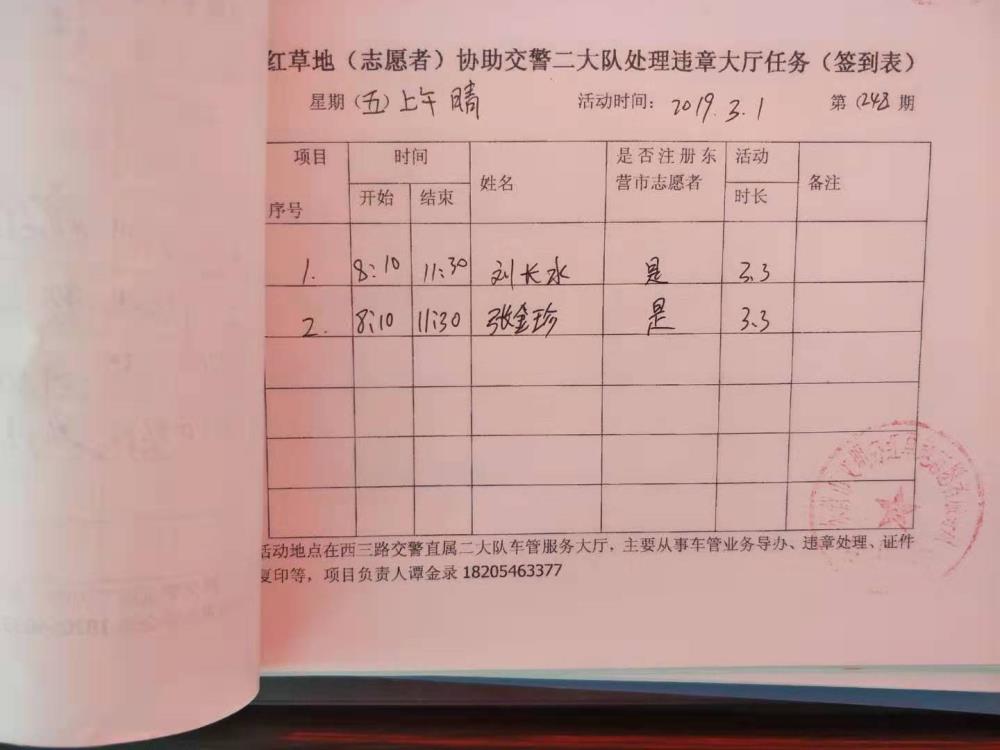 红草地（志愿者）协助交警二大队处理违章大厅任务（签到表）
星期（五）上午 晴 活动时间： 2019.3.1 第（248期
项目 时间 姓名 是否注册东 活动 备注
营市志愿者
序号 开始 结束 时长
1. 8:10 11:30 刘长水 是 3.3
2. 8:10 11:30 张金珍 是 3.3
活动地点在西三路交警直属二大队车管服务大厅，主要从事车管业务导办、违章处理、证件
复印等，项目负责人谭金录 18205463377